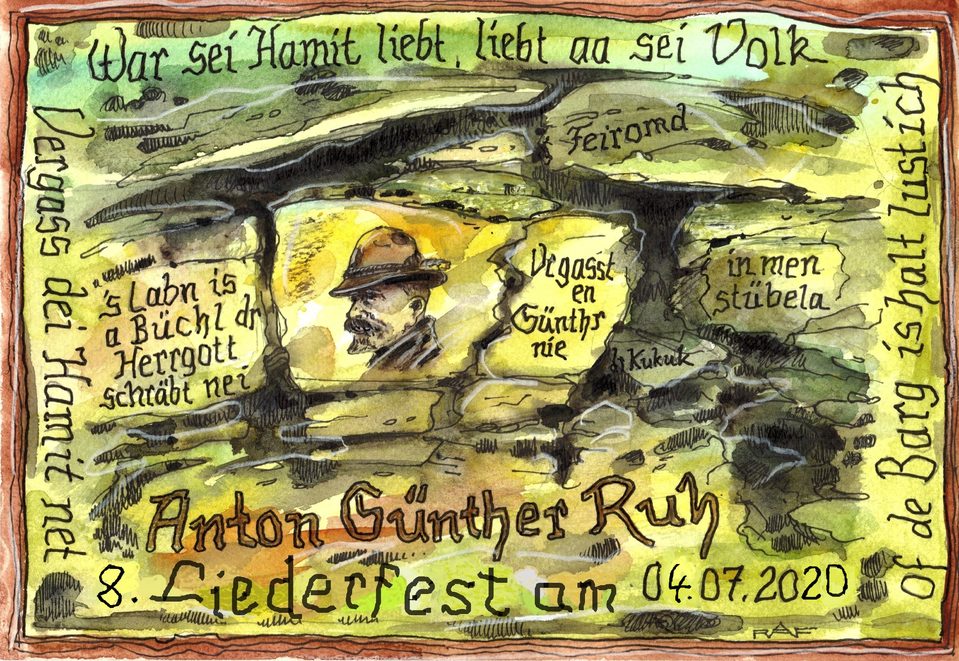 War sei Hamit liebt, liebt aa sei Volk
Vergass dei Hamit net
Feiromd
's Labn is
a Büchl dr
Herrgott
schräbt nei
Vrgasst
en
Günthr
nie
in men
stübela
dr Kukuk
of de Barg is halt lustich
Anton Günther Ruh
8. Liederfest am 04.07.2020
RAF